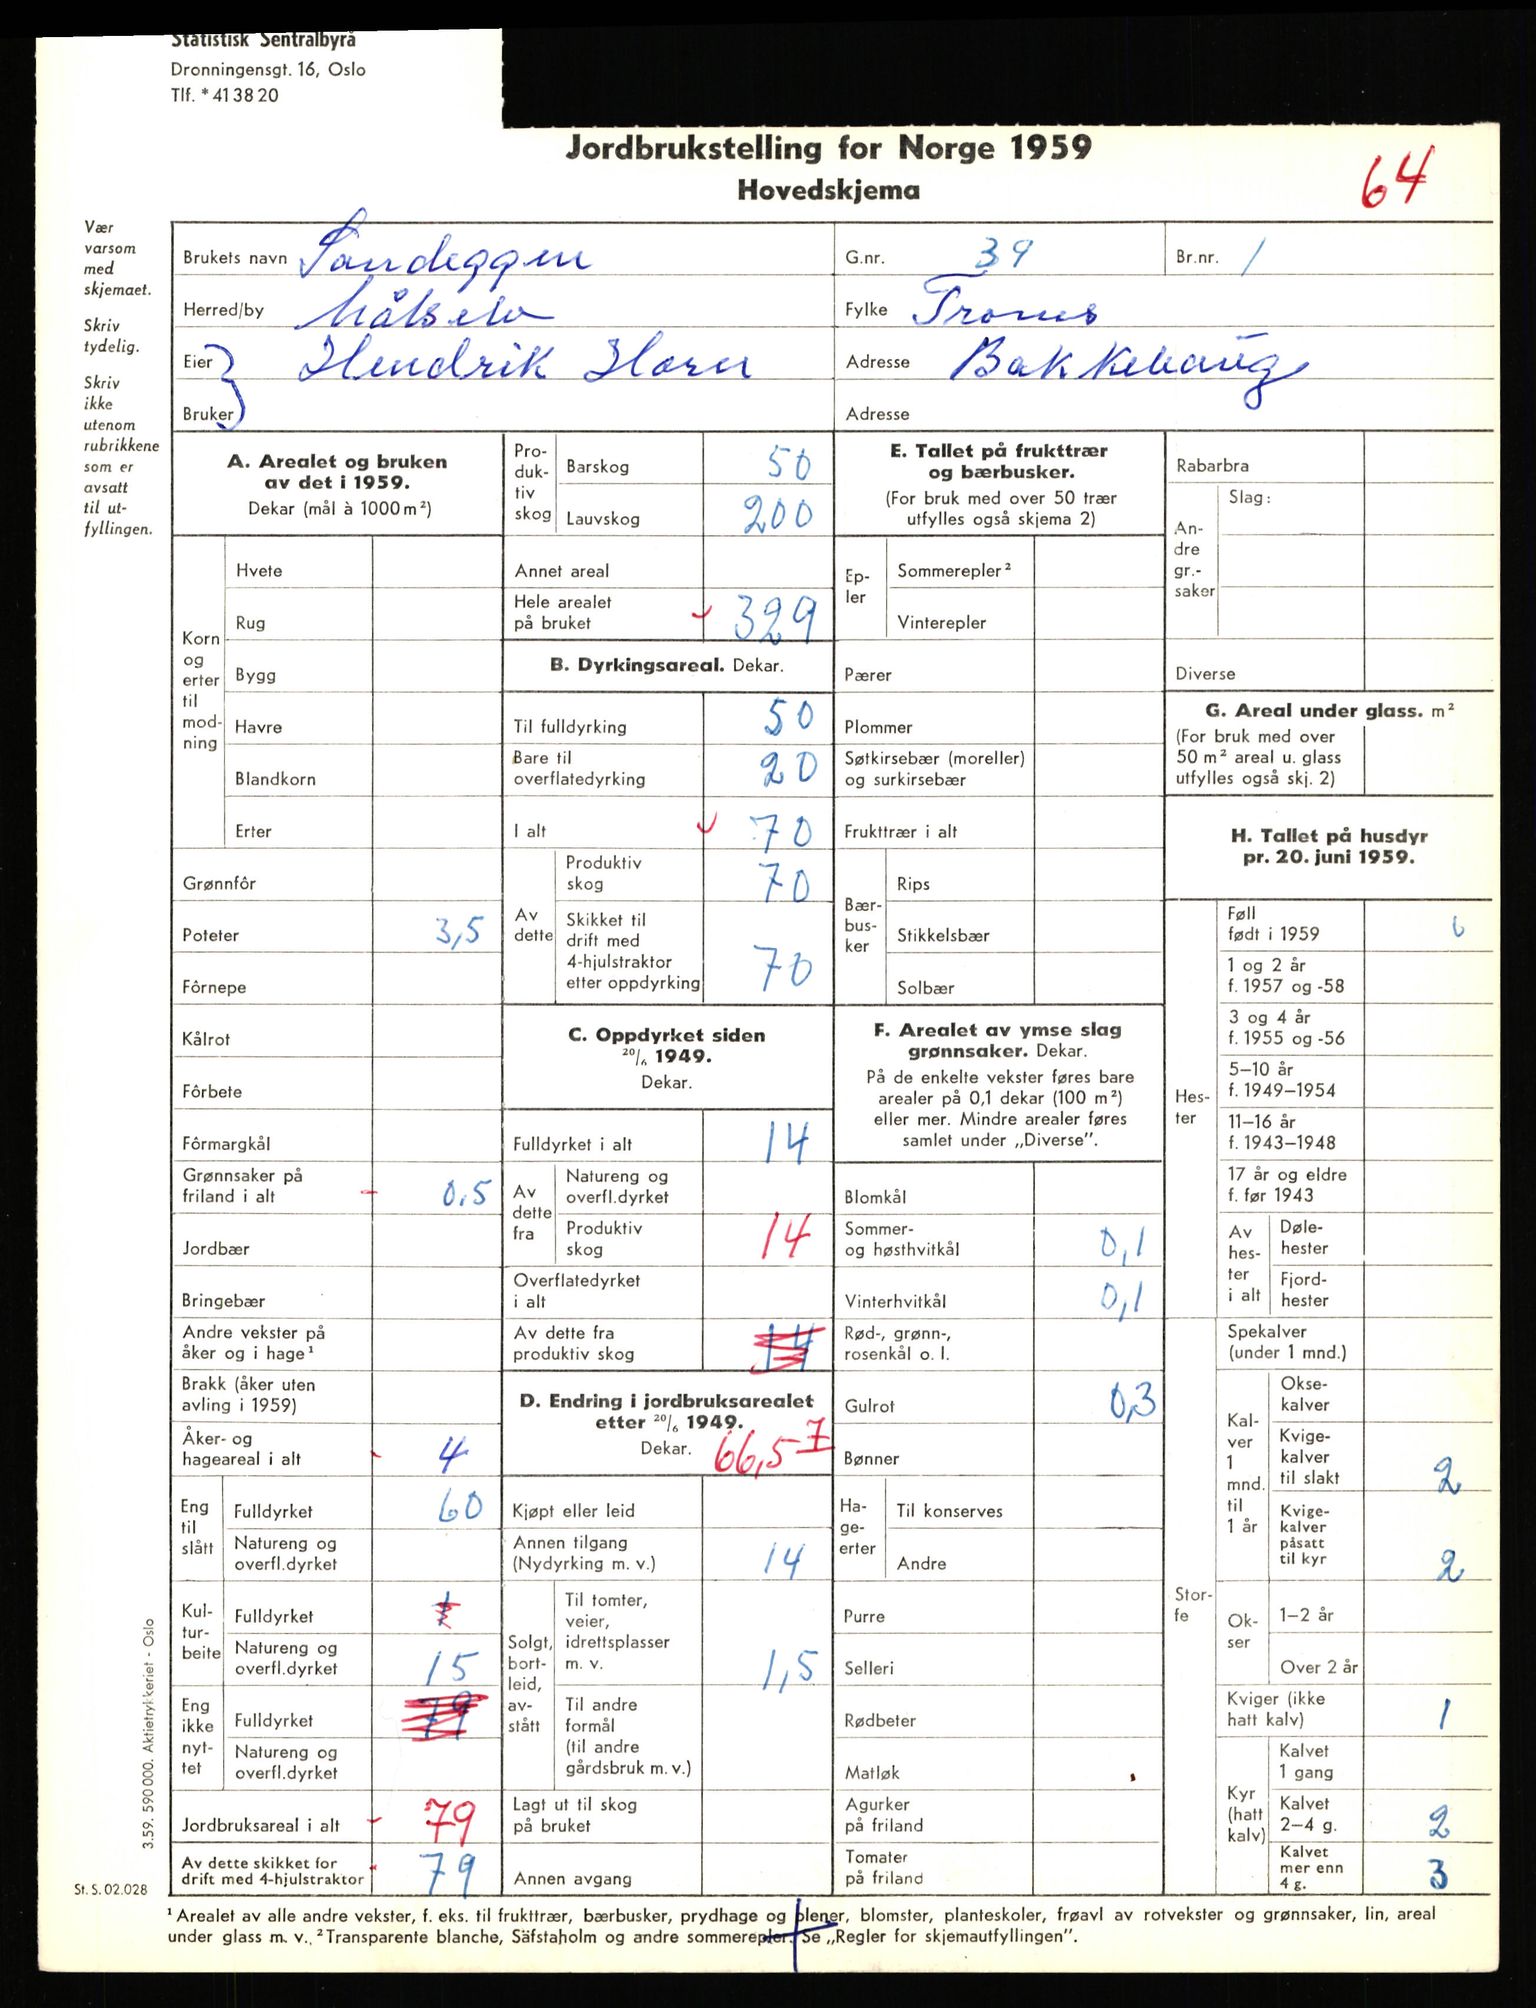 Statistisk Sentralbyrå
Dronningensgt. 16, Oslo
Tlf. * 41 38 20
Jordbrukstelling for Norge 1959
Hovedskjema
64
Vær
varsom
med
skjemaet.
Skriv
tydelig.
Skriv
ikke
utenom
rubrikkene
som er
avsatt
til ut-
fyllingen.
Brukets navn Sandeggen G.nr. 39 Br.nr. 1
Herred/by Målselv Fylke Troms
Eier } Hendrik Horn Adresse Bakkehaug
Bruker Adresse
A. Arealet og bruken
av det i 1959.
Dekar (mål à 1000 m²)
Korn
og
erter
til
mod-
ning
Hvete
Rug
Bygg
Havre
Blandkorn
Erter
Grønnfôr
Poteter 3,5
Fôrnepe
Kålrot
Fôrbete
Fôrmargkål
Grønnsaker på
friland i alt – 0,5
Jordbær
Bringebær
Andre vekster på
åker og i hage¹
Brakk (åker uten
avling i 1959)
Åker- og
hageareal i alt 4
Eng
til
slått
Fulldyrket 60
Natureng og
overfl.dyrket
Kul-
tur-
beite
Fulldyrket
Natureng og
overfl.dyrket 15
Eng
ikke
nyt-
tet
Fulldyrket 79
Natureng og
overfl.dyrket
Jordbruksareal i alt 79
Av dette skikket for
drift med 4-hjulstraktor 79
Pro-
duk-
tiv
skog
Barskog 50
Lauvskog 200
Annet areal
Hele arealet
på bruket 329
B. Dyrkingsareal. Dekar.
Til fulldyrking 50
Bare til
overflatedyrking 20
I alt 70
Av
dette
Produktiv
skog 70
Skikket til
drift med
4-hjulstraktor
etter oppdyrking 70
C. Oppdyrket siden
20/6 1949.
Dekar.
Fulldyrket i alt 14
Av
dette
fra
Natureng og
overfl.dyrket
Produktiv
skog 14
Overflatedyrket
i alt
Av dette fra
produktiv skog 14
D. Endring i jordbruksarealet
etter 20/6 1949.
Dekar. 66,5
Kjøpt eller leid
Annen tilgang
(Nydyrking m. v.) 14
Solgt,
bort-
leid,
av-
stått
Til tomter,
veier,
idrettsplasser
m. v. 1,5
Til andre
formål
(til andre
gårdsbruk m. v.)
Lagt ut til skog
på bruket
Annen avgang
E. Tallet på frukttrær
og bærbusker.
(For bruk med over 50 trær
utfylles også skjema 2)
Ep-
ler
Sommerepler²
Vinterepler
Pærer
Plommer
Søtkirsebær (moreller)
og surkirsebær
Frukttrær i alt
Bær-
bus-
ker
Rips
Stikkelsbær
Solbær
F. Arealet av ymse slag
grønnsaker. Dekar.
På de enkelte vekster føres bare
arealer på 0,1 dekar (100 m²)
eller mer. Mindre arealer føres
samlet under „Diverse”.
Blomkål
Sommer-
og høsthvitkål 0,1
Vinterhvitkål 0,1
Rød-, grønn-,
rosenkål o. l.
Gulrot 0,3
Bønner
Ha-
ge-
erter
Til konserves
Andre
Purre
Selleri
Rødbeter
Matløk
Agurker
på friland
Tomater
på friland
Rabarbra
An-
dre
gr.-
saker
Slag:
Diverse
G. Areal under glass. m²
(For bruk med over
50 m² areal u. glass
utfylles også skj. 2)
H. Tallet på husdyr
pr. 20. juni 1959.
Hes-
ter
Føll
født i 1959
1 og 2 år
f. 1957 og -58
3 og 4 år
f. 1955 og -56
5–10 år
f. 1949–1954
11–16 år
f. 1943–1948
17 år og eldre
f. før 1943
Av
hes-
ter
i alt
Døle-
hester
Fjord-
hester
Stor-
fe
Spekalver
(under 1 mnd.)
Kal-
ver
1
mnd.
til
1 år
Okse-
kalver
Kvige-
kalver
til slakt 2
Kvige-
kalver
påsatt
til kyr 2
Ok-
ser
1–2 år
Over 2 år
Kviger (ikke
hatt kalv) 1
Kyr
(hatt
kalv)
Kalvet
1 gang
Kalvet
2–4 g. 2
Kalvet
mer enn
4 g. 3
3.59. 590 000. Aktietrykkeriet - Oslo
St. S. 02.028
¹ Arealet av alle andre vekster, f. eks. til frukttrær, bærbusker, prydhage og plener, blomster, planteskoler, frøavl av rotvekster og grønnsaker, lin, areal
under glass m. v. ² Transparente blanche, Säfstaholm og andre sommerepler. Se „Regler for skjemautfyllingen”.